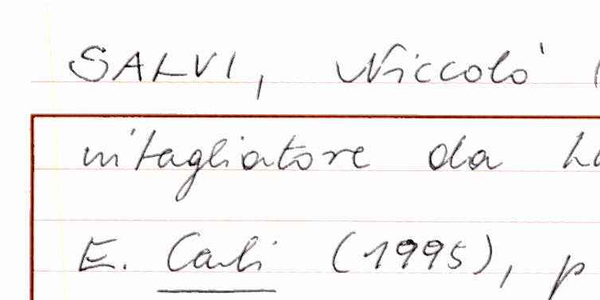 SALVI, Niccolò (
intagliatore da
E. Carli (1995), p